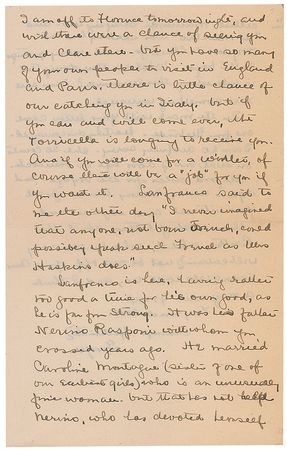 I am off to Florence tomorrow night, and
wish there were a chance of seeing you
and Clare there - but you have so many
of your own people to visit in England
and Paris, there is little chance of
our catching you in Italy, but if
you can and will come ever, the
Torricella is longing to receive you.
And if you will come for a winter, of
course there will be a "job" for you if
you want it. Lanfranco said to
me the other day "I never imagined
that anyone, not born French, could
possibly speak such French as Mrs
Haskins does."
Lanfranco is here, having rather
too good a time for his own good, as
he is far from strong. It was his father
Nerino Rasponi with whom you
crossed years ago. He married
Caroline Montague (sister of one of
our earliest girls) who is an unusually
fine woman. but that has not held
Nerino, who has devoted himself